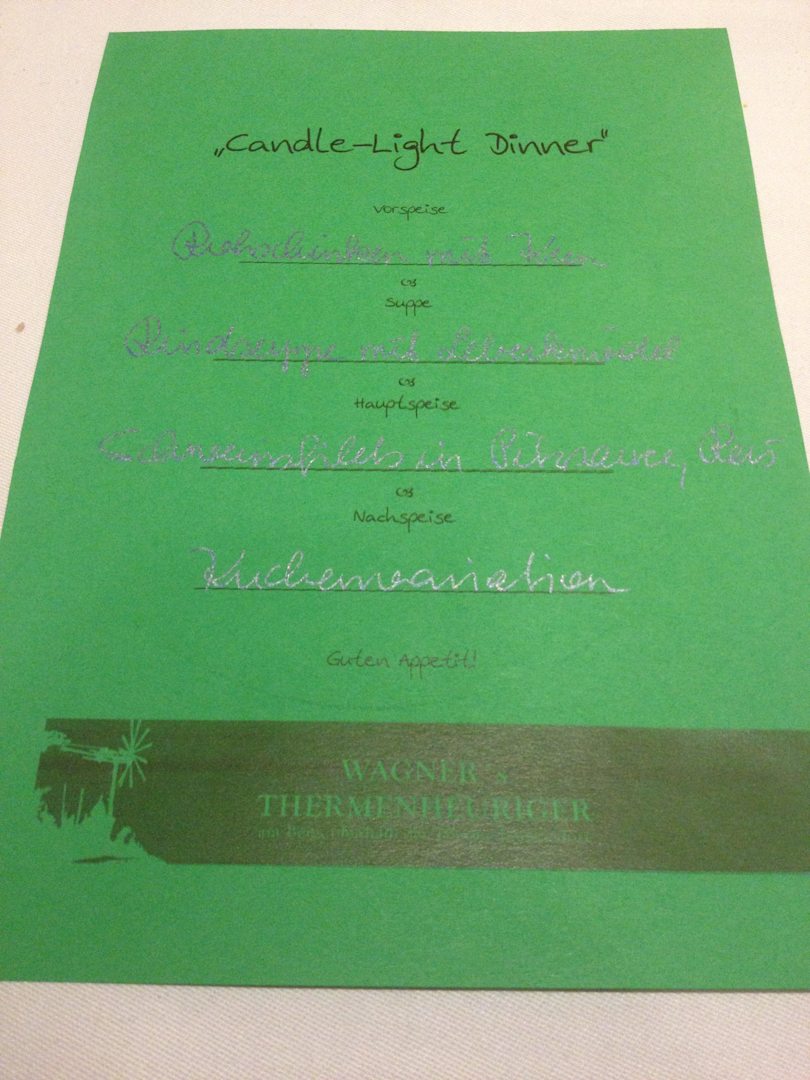 „Candle-Light Dinner"
Vorspeise
Rohschinken mit Kren
Suppe
Rindsuppe mit Leberknödel
Hauptspeise
Schweinsfilets in Pilzsauce, Reis
Nachspeise
Kuchenvariation
Guten Appetit!
WAGNER's
THERMENHEURIGER